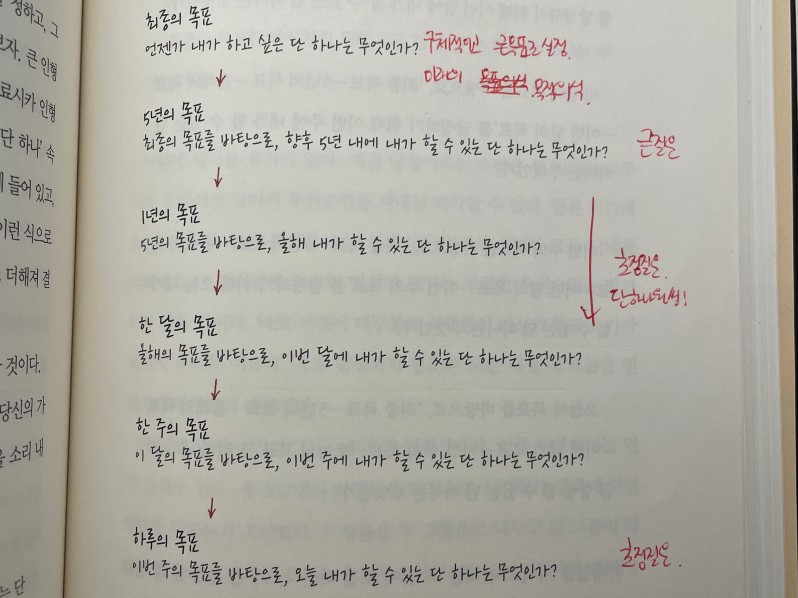 정하고, 그
보자. 큰 인형
료시카 인형
단 하나' 속
들어 있고,
이런 식으로
더해져 결
것이다.
당신의 가
소리 내
느 단
최종의 목표
언젠가 내가 하고 싶은 단 하나는 무엇인가? 구체적인 큰목표로 설정.
미래의 목표의식 목적의식.
↓
5년의 목표
최종의 목표를 바탕으로, 향후 5년 내에 내가 할 수 있는 단 하나는 무엇인가? 큰질문
↓
1년의 목표
5년의 목표를 바탕으로, 올해 내가 할 수 있는 단 하나는 무엇인가?
초점질문.
↓
한 달의 목표
올해의 목표를 바탕으로, 이번 달에 내가 할 수 있는 단 하나는 무엇인가?
↓
한 주의 목표
이 달의 목표를 바탕으로, 이번 주에 내가 할 수 있는 단 하나는 무엇인가?
↓
하루의 목표
이번 주의 목표를 바탕으로, 오늘 내가 할 수 있는 단 하나는 무엇인가? 초점질문.